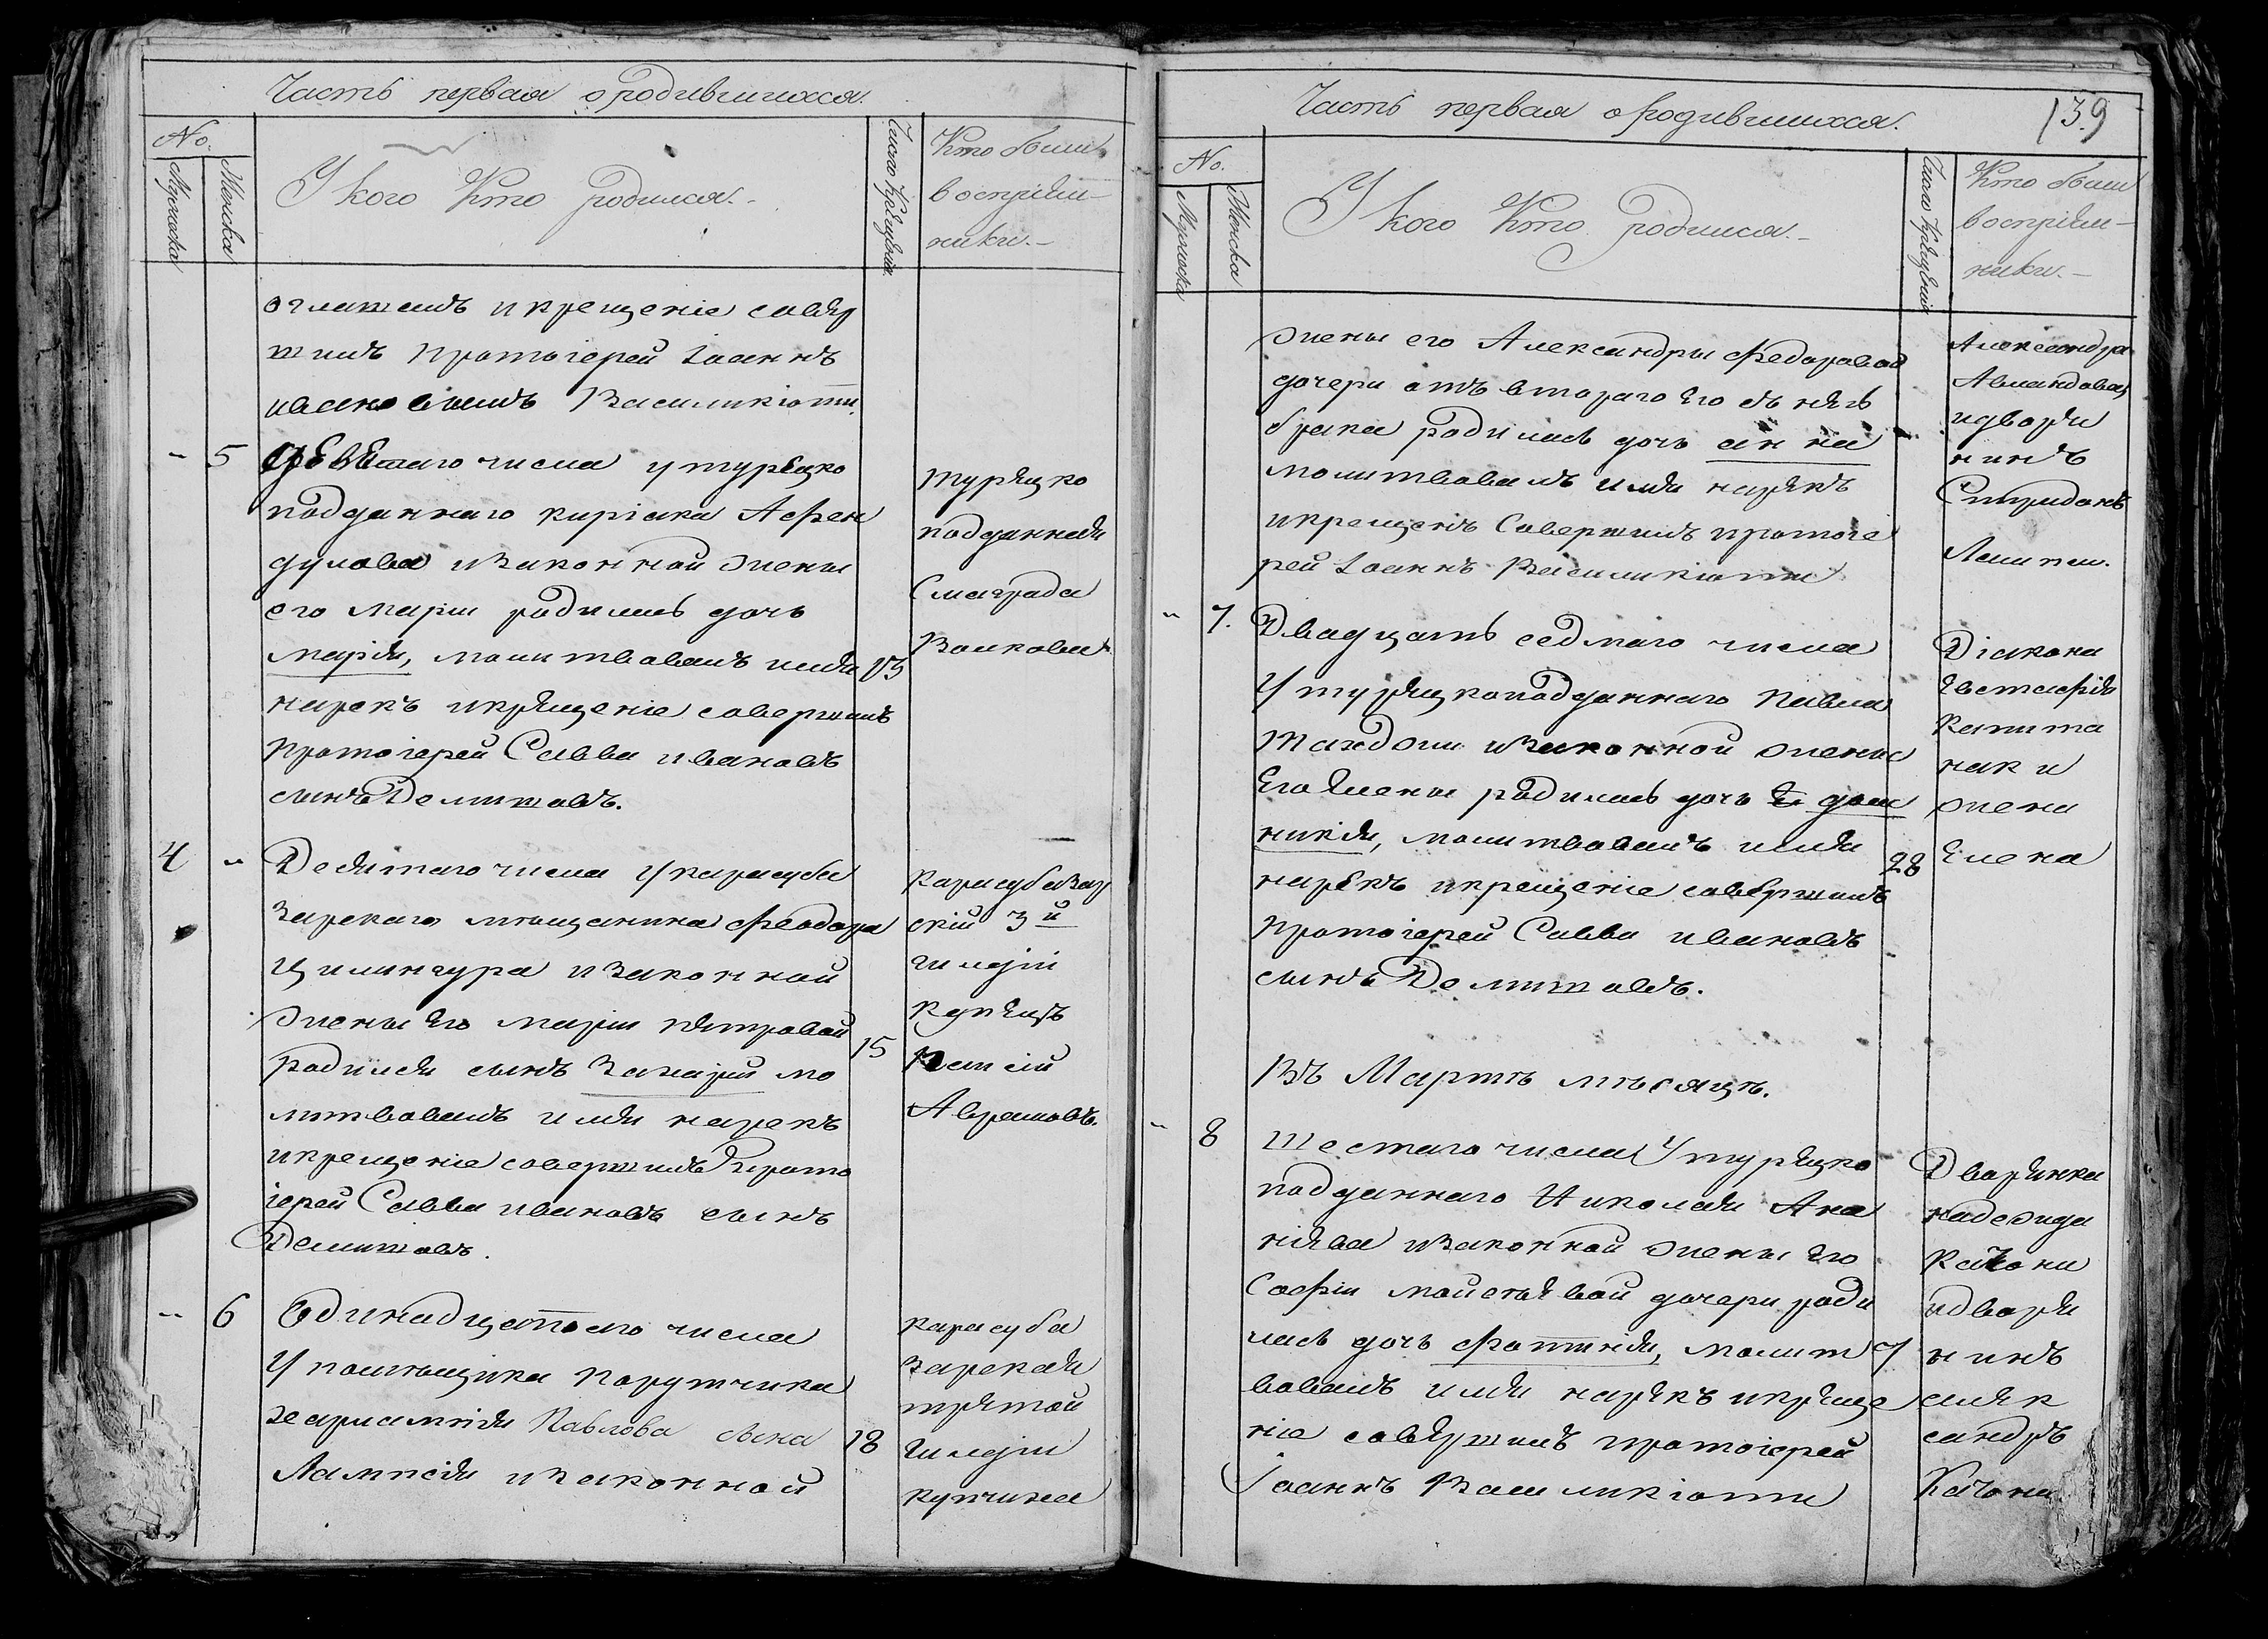 Часть первая о родившихся.
No.
Мужеска
Женска
У кого Кто родился.-
Число Крещенія
Кто были
воспріем-
ники.-
крещеніе совер
шилъ протоіерей Іоаннъ
Василикіоти.
- 5
Девятаго числа у турецко
подданнаго киріака Афен
дулова изаконной жены
его маріи родилась дочь
марія, молитвовалъ имя
нарекъ икрещеніе совершилъ
протоіерей Савва ивановъ
сынъ Делитовъ.
13
турецко
подданная
Смаграда
Волкова
4 "
Десятаго числа у карасуба
зарскаго мѣщанина Феодора
Цилингура изаконной
жены его маріи петровой
родился сынъ Захарій мо
литвовалъ имя нарекъ
икрещеніе совершилъ прото
іерей Савва ивановъ сынъ
Делитовъ.
15
карасубазар
скій 3й
гилдіи
купецъ
Авраамовъ.
" 6
Одинадцатого числа
у помѣщика порутчика
Павлова сына
изаконной
18
карасуба
зарская
третой
гилдіи
купчиха
Часть первая о родившихся.
139
No.
Мужеска
Женска
У кого Кто родился.-
Число Крещенія
Кто были
воспріем-
ники.-
жены его Александры Федоровой
дочери отъ втораго его съ нею
брака родилась дочь анна
молитвовалъ имя нарекъ
икрещенъ Совершилъ протоіе
рей Іоаннъ Василикіоти
Александра
идворя
нинъ
Спиридонъ
" 7.
Двадцать седмаго числа
У турецкоподданнаго павла
изаконной жены
его Елены родилась дочь дом
никія, молитвовалъ имя
нарекъ икрещеніе совершилъ
протоіерей Савва ивановъ
сынъ Делитовъ.
28
Діакона
Евстафія
капита
нак и
жена
Елена
Въ Мартѣ мѣсяцѣ.
" 8
Шестаго числа У турецко
подданнаго Николая Ана
ніева изаконной жены его
Софіи дочери роди
лась дочь фотинія, молит
вовалъ имя нарекъ икреще
ніе совершилъ протоіерей
Іоаннъ Василикіоти
7
Дворянка
надежда
Качони
идворя
нинъ
алек
сандръ
Качони